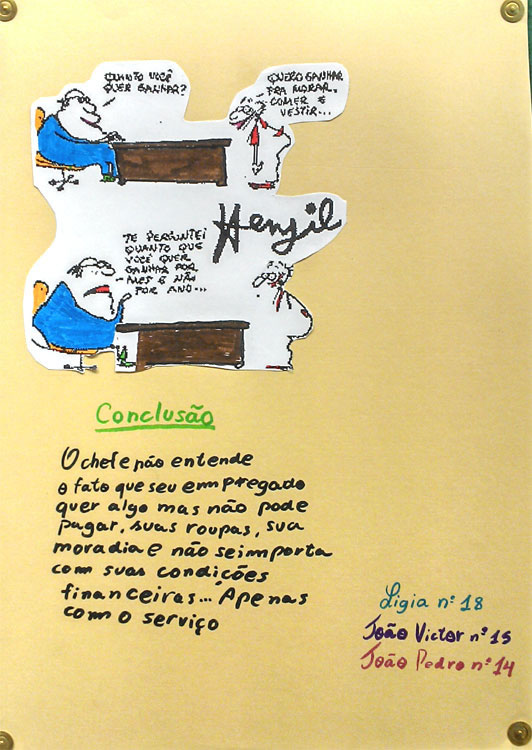 QUANTO VOCÊ
QUER GANHAR?
QUERO GANHAR
PRA MORAR,
COMER E
VESTIR...
Henfil
TE PERGUNTEI
QUANTO QUE
VOCÊ QUER
GANHAR POR
MES E NÃO
POR ANO...
Conclusão
O chefe não entende
o fato que seu empregado
quer algo mas não pode
pagar, suas roupas, sua
moradia e não se importa
com suas condições
financeiras... Apenas
com o serviço
Lígia nº 18
João Victor nº 15
João Pedro nº 14